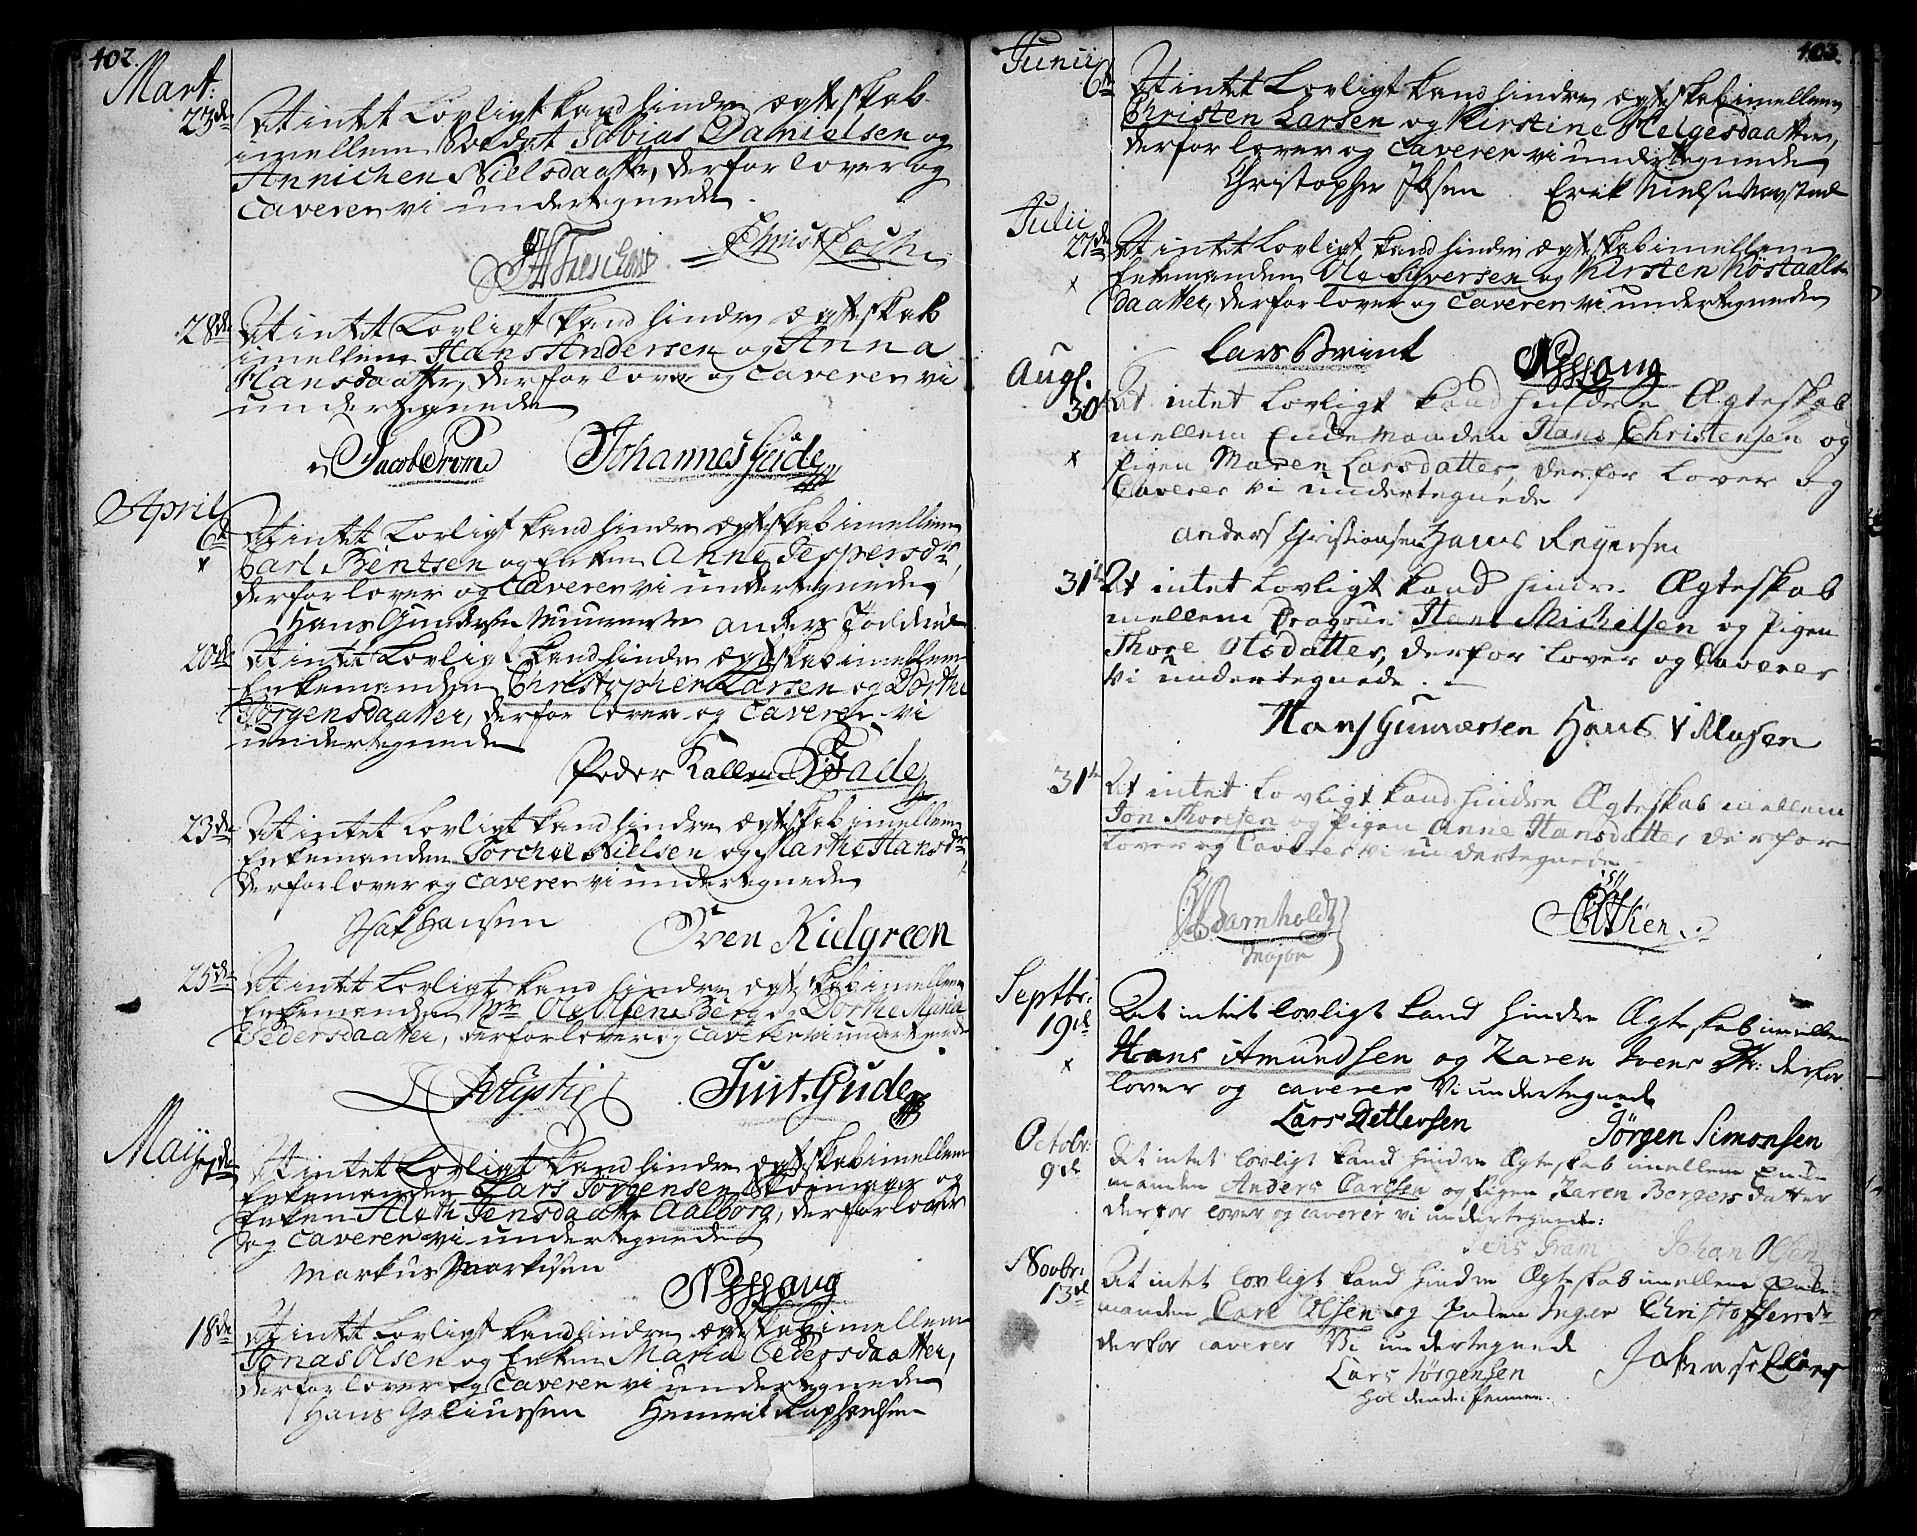 402.
Mart:
23de At intet Lovligt kand hindre ægteskab
imellem Soldat Tobias Danielsen og
Annichen Nielsdaatter, derfor lover og
Caverer vi undertegnede.
Christ Koch
28de At intet Lovligt kand hindre ægteskab
imellem Hans Andersen og Anna
Hansdaatter, derfor lover og Caverer vi
undertegnede
Jacob Prom Johannes Gude
April
6te At intet Lovligt kand hindre ægteskab imellem
x Carl Bentsen og Enken Anne Jeppersdr,
derfor lover og Caverer vi undertegnede
Hans Gundersen Anders
20de At intet Lovligt kand hindre ægteskab imellem
Enkemanden Christopher Larsen og Dorthe
Jørgensdaatter, derfor lover og Caverer vi
undertegnede
Peder Gade
23de At intet Lovligt kand hindre ægteskab imellem
Enkemanden Torchel Nielsen og Marthe Hansdr,
derfor lover og Caverer vi undertegnede
Hansen Sven Kielgreen
25de At intet Lovligt kand hindre ægteskab imellem
Enkemanden Ole Olsen Berg og Dorthe Maria
Pedersdaatter, derfor lover og Caverer vi undertegnede
Just. Gude
Maij
7de At intet Lovligt kand hindre ægteskab imellem
Enkemanden Lars Jørgensen og
Enken Aleth Jensdaatter Aalborg, derfor lover
og Caverer vi undertegnede
Markus Markusen
18de At intet Lovligt kand hindre ægteskab imellem
Jonas Olsen og Enken Maria Pedersdaatter,
derfor lover og Caverer vi undertegnede
Hans Henrik
403.
Junii
6te At intet Lovligt kand hindre ægteskab imellem
Christen Larsen og Kirstine Helgesdaatter,
derfor lover og Caverer vi undertegnede
Christopher Ibsen Erik Nielsen
Julii
27de At intet Lovligt kand hindre ægteskab imellem
x Enkemanden Ole Syversen og Kirsten
daatter, derfor lover og Caverer vi undertegnede
Lars Brink
Augs.
30 At intet Lovligt kand hindre Ægteskab
mellem Enkemanden Hans Christensen og
x Pigen Maren Larsdatter, derfor lover og
Caverer vi undertegnede
Anders Christiansen Hans
31te At intet Lovligt kand hindre Ægteskab
mellem Dragoun Hans Michelsen og Pigen
Thore Olsdatter, derfor lover og Caverer
Vi undertegnede.
Hans Gunnersen Hans
31te At intet Lovligt kand hindre Ægteskab mellem
Jon Thoresen og Pigen Anne Hansdatter derfor
lover og Caverer vi undertegnede
Barnholdt
Major
Septbr:
19de Det intet lovligt kand hindre Ægteskab imellem
x Hans Amundsen og Karen Ivers Dtr: derfor
lover og caverer Vi undertegnede
Lars Detlersen Jörgen Simonsen
Octobr:
9de Det intet lovligt kand hindre Ægteskab imellem Enke
manden Anders Carlsen og Pigen Karen Bergers datter
derfor lover og caverer vi undertegnede:
Jens Gram Johan Olsen
Novbr:
13de Det intet lovligt kand hindre Ægteskab imellem Enke-
manden Carl Olsen og Enken Inger Christoffersdr
derfor caverer Vi undertegnede
Lars Jörgensen
holdende Pennen.